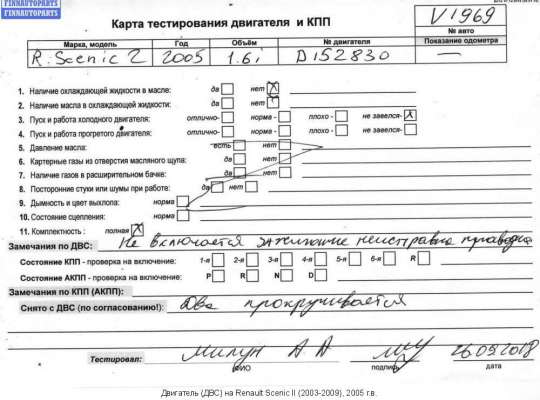 FINNAUTOPARTS
FINNAUTOPARTS
Карта тестирования двигателя и КПП
V1969
№ авто
Марка, модель Год Объём № двигателя Показание одометра
R. Scenic 2 2005 1.6i D152830 —
1. Наличие охлаждающей жидкости в масле: да нет X
2. Наличие масла в охлаждающей жидкости: да нет
3. Пуск и работа холодного двигателя: отлично- норма - плохо - не завелся- X
4. Пуск и работа прогретого двигателя: отлично- норма - плохо - не завелся-
5. Давление масла: есть нет
6. Картерные газы из отверстия масляного щупа: да нет
7. Наличие газов в расширительном бачке: да нет
8. Посторонние стуки или шумы при работе: да нет
9. Дымность и цвет выхлопа: норма
10. Состояние сцепления: норма
11. Комплектность : полная X
Замечания по ДВС: Не включается зажигание неисправна проводка
Состояние КПП - проверка на включение: 1-я 2-я 3-я 4-я 5-я 6-я R
Состояние АКПП - проверка на включение: P R N D
Замечания по КПП (АКПП):
Снято с ДВС (по согласованию!): Два прокручивается
Тестировал: Милун А А 26.09.2018
ФИО подпись дата
Двигатель (ДВС) на Renault Scenic II (2003-2009), 2005 г.в.